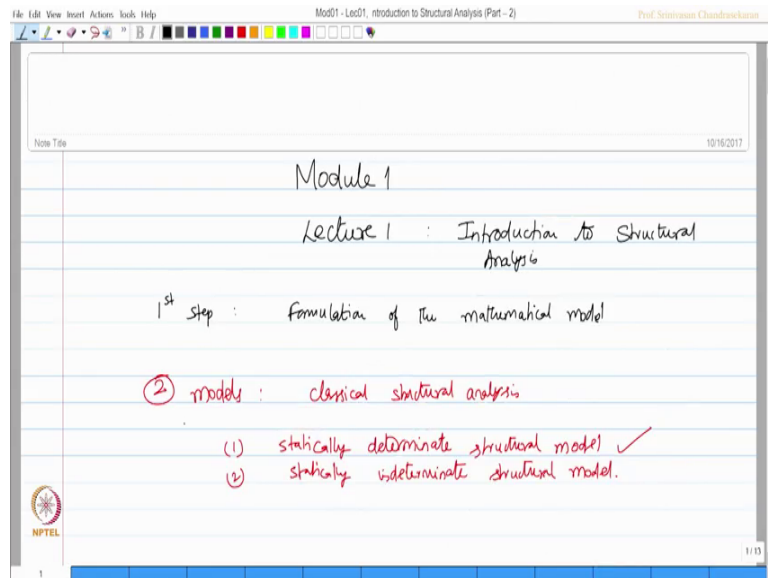 File Edit View Insert Actions Tools Help
Mod01 - Lec01, ntroduction to Structural Analysis (Part – 2)
Prof. Srinivasan Chandrasekaran
B I
Note Title
10/16/2017
Module 1
Lecture 1 : Introduction to Structural
Analysis
1st step : Formulation of the mathematical model
2 models : classical structural analysis
(1) statically determinate structural model ✓
(2) statically indeterminate structural model.
NPTEL
1 / 13
1